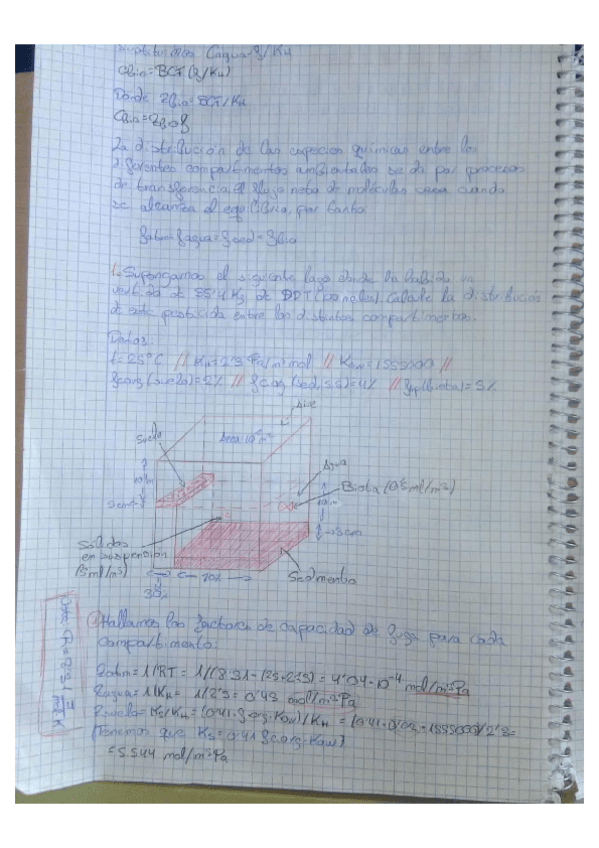 sustituimos Cagua=f/KH
Cbio=BCF(f/KH)
Donde Zbio=BCF/KH
Cbio=Zbio f
La distribución de las especies químicas entre los
diferentes compartimentos ambientales se da por procesos
de transferencia, el flujo neto de moléculas cesa cuando
se alcanza el equilibrio, por tanto
fatm=fagua=fsed=fbio
1.-Supongamos el siguiente lago donde ha habido un
vertido de 55'4 Kg de DDT. Calcule la distribución
de este pesticida entre los distintos compartimentos.
Datos:
t=25ºC // KH=2'3 Pa/m³mol // Kow=1555000 //
fcorg(suelo)=2% // fcorg(sed,ss)=4% // flip(biota)=5%
Aire
Suelo
Área
Agua
Biota (0'5ml/m³)
3cm
Sólidos
en suspensión
(5ml/m³)
70%
30%
Sedimento
Hallamos los factores de capacidad de fuga para cada
compartimento:
Zatm=1/RT=1/(8'31·(25+273)=4'04·10⁻⁴ mol/m³Pa
Zagua=1/KH=1/2'3=0'43 mol/m³Pa
Zsuelo=Ks/KH=(0'41·fcorg·Kow)/KH=(0'41·0'02·1555000)/2'3=
[Tenemos que Ks=0'41 fcorg·Kow]
=5.544 mol/m³Pa